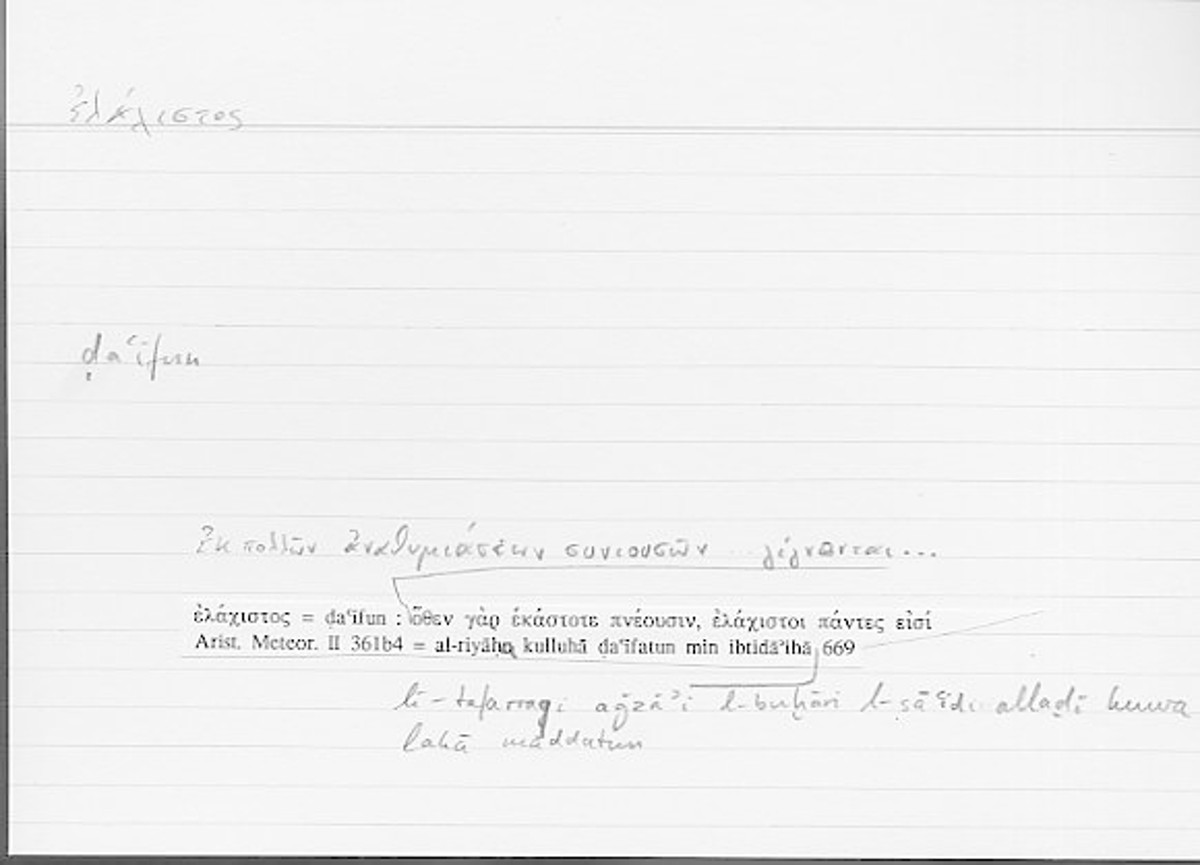 ἐλάχιστος
ḍaʿīfun
Ἐκ πολλῶν ἀναθυμιάσεων συνιουσῶν .. γίγνονται...
ἐλάχιστος = ḍaʿīfun : ὅθεν γὰρ ἑκάστοτε πνέουσιν, ἐλάχιστοι πάντες εἰσί
Arist. Meteor. II 361b4 = al-riyāḥu kulluhā ḍaʿīfatun min ibtidāʾihā 669
li-tafarruqi aǧzāʾi l-buḫāri l-ṣāʿidi allaḏī huwa
lahā māddatun